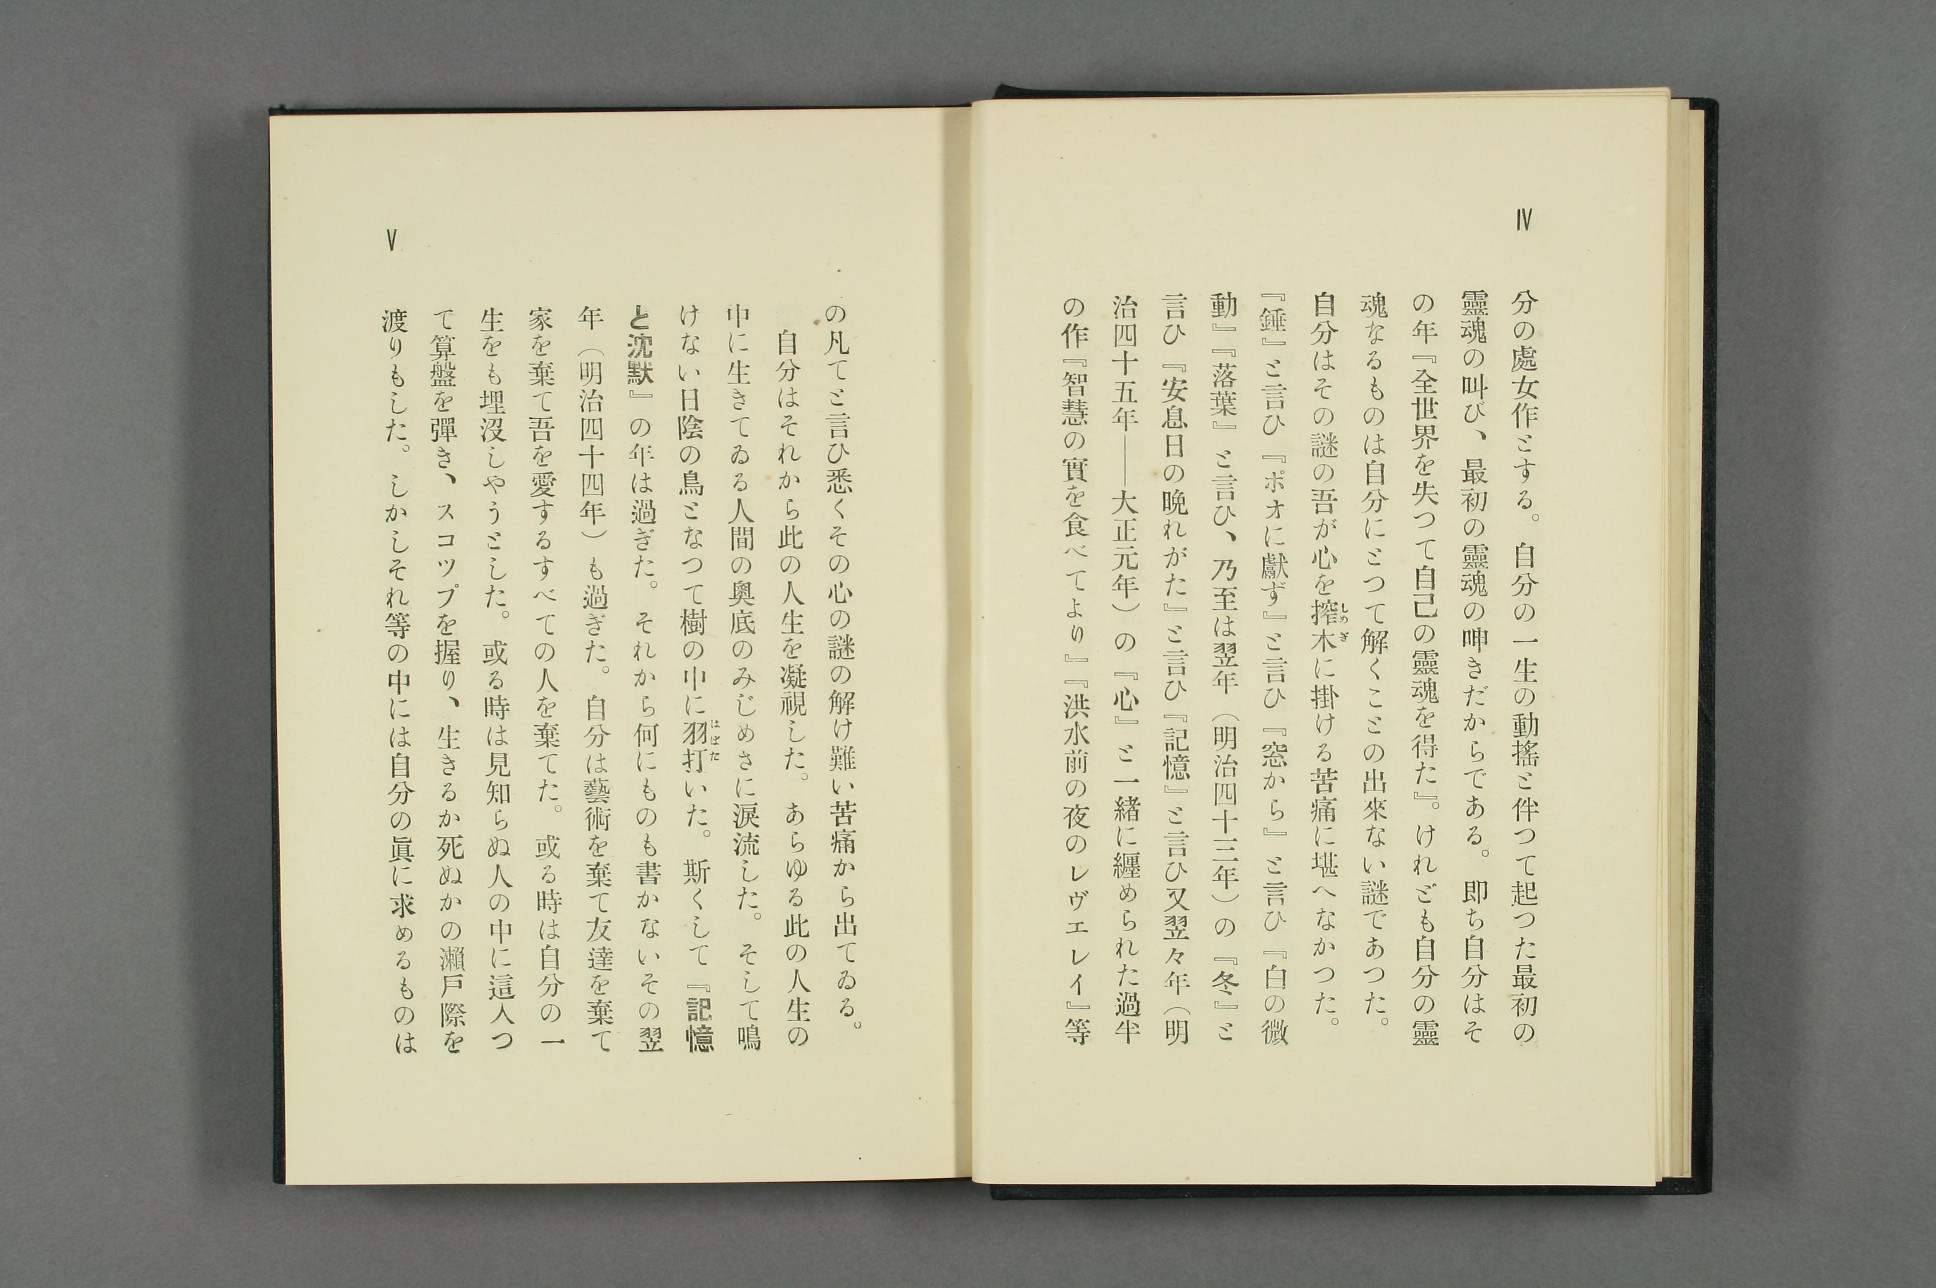 IV
分の處女作とする。自分の一生の動搖と伴つて起つた最初の
靈魂の叫び、最初の靈魂の呻きだからである。即ち自分はそ
の年『全世界を失つて自己の靈魂を得た』。けれども自分の靈
魂なるものは自分にとつて解くことの出來ない謎であつた。
自分はその謎の吾が心を搾木に掛ける苦痛に堪へなかつた。
しめぎ
『錘』と言ひ『ポオに獻ず』と言ひ『窓から』と言ひ『白の微
動』『落葉』と言ひ、乃至は翌年（明治四十三年）の『冬』と
言ひ『安息日の晩れがた』と言ひ『記憶』と言ひ又翌々年（明
治四十五年――大正元年）の『心』と一緒に纒められた過半
の作『智慧の實を食べてより』『洪水前の夜のレヴエレイ』等
の凡てと言ひ悉くその心の謎の解け難い苦痛から出てゐる。
自分はそれから此の人生を凝視した。あらゆる此の人生の
中に生きてゐる人間の奧底のみじめさに淚流した。そして鳴
けない日陰の鳥となつて樹の中に羽打いた。斯くして『記憶
はばた
と沈默』の年は過ぎた。それから何にものも書かないその翌
年（明治四十四年）も過ぎた。自分は藝術を棄て友達を棄て
家を棄て吾を愛するすべての人を棄てた。或る時は自分の一
生をも埋沒しやうとした。或る時は見知らぬ人の中に這入つ
て算盤を彈き、スコツプを握り、生きるか死ぬかの瀨戸際を
渡りもした。しかしそれ等の中には自分の眞に求めるものは
V